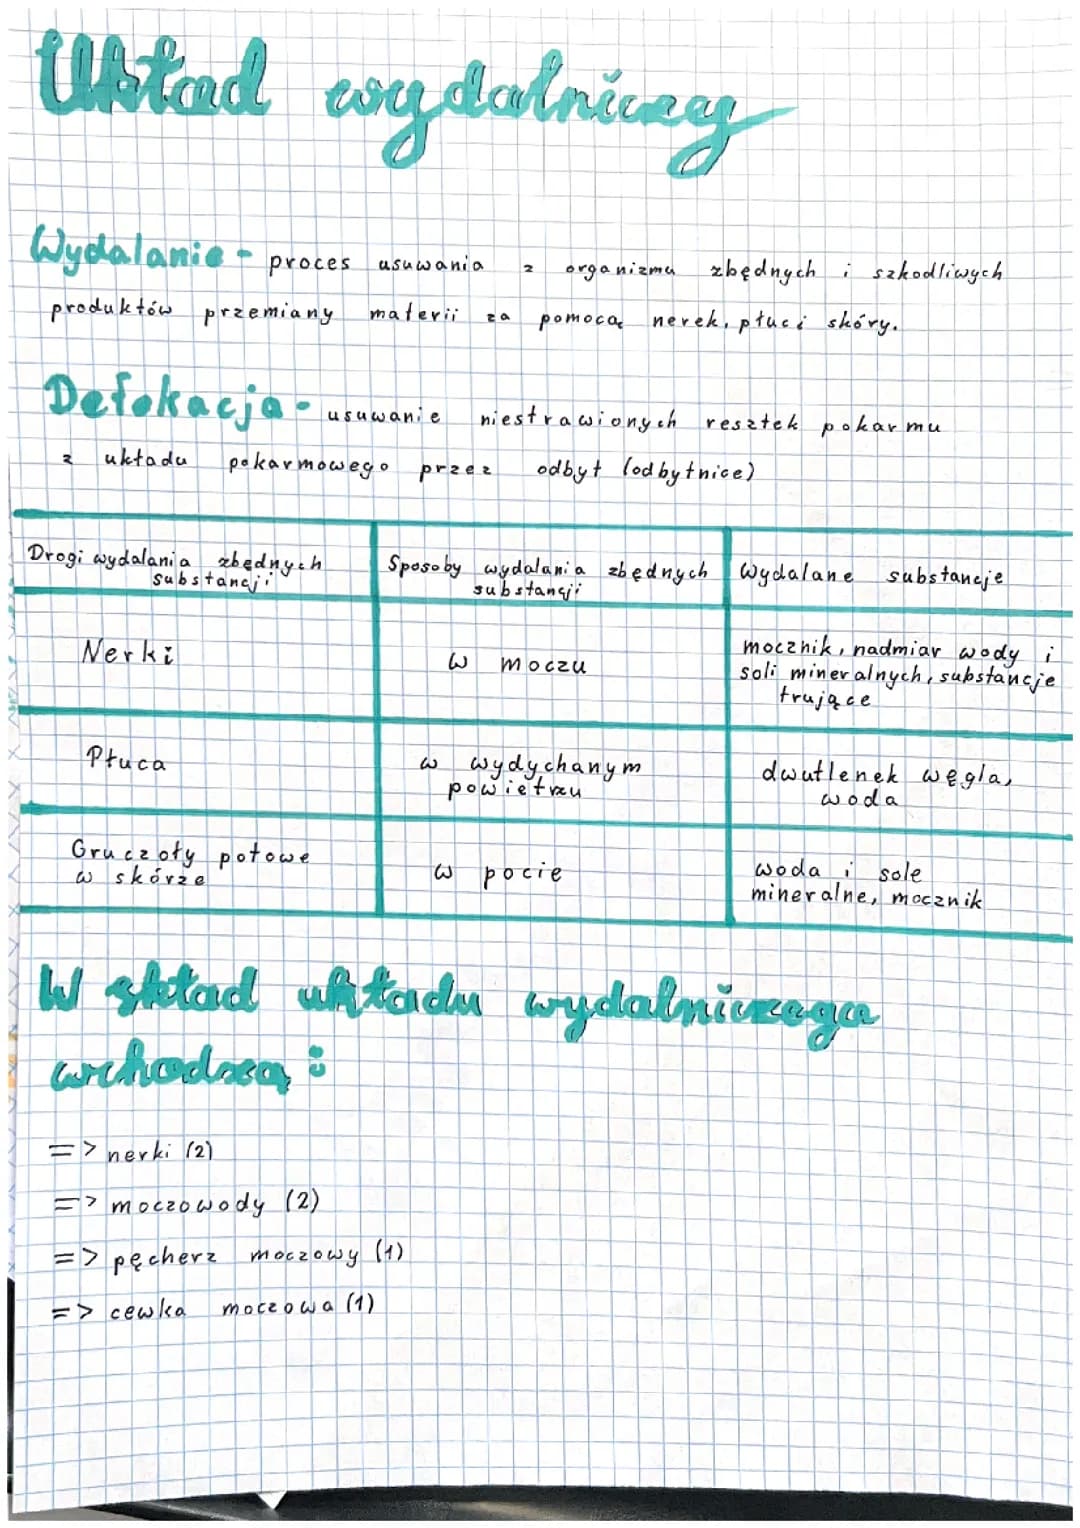 Układ wydalniczy
Wydalanie - proces usuwania z organizmu zbędnych i szkodliwych
produktów przemiany materii za pomocą nerek, płuc i skóry.
Defekacja - usuwanie niestrawionych resztek pokarmu
z układu pokarmowego przez odbyt (odbytnice)
Drogi wydalania zbędnych
substancji
Sposoby wydalania zbędnych
substancji
Wydalane substancje
Nerki
w moczu
mocznik, nadmiar wody i
soli mineralnych, substancje
trujące
Płuca
w wydychanym
powietrzu
dwutlenek węgla,
woda
Gruczoły potowe
w skórze
w pocie
woda i sole
mineralne, mocznik
W skład układu wydalniczego
wchodzą:
=> nerki (2)
=> moczowody (2)
=> pęcherz moczowy (1)
=> cewka moczowa (1)